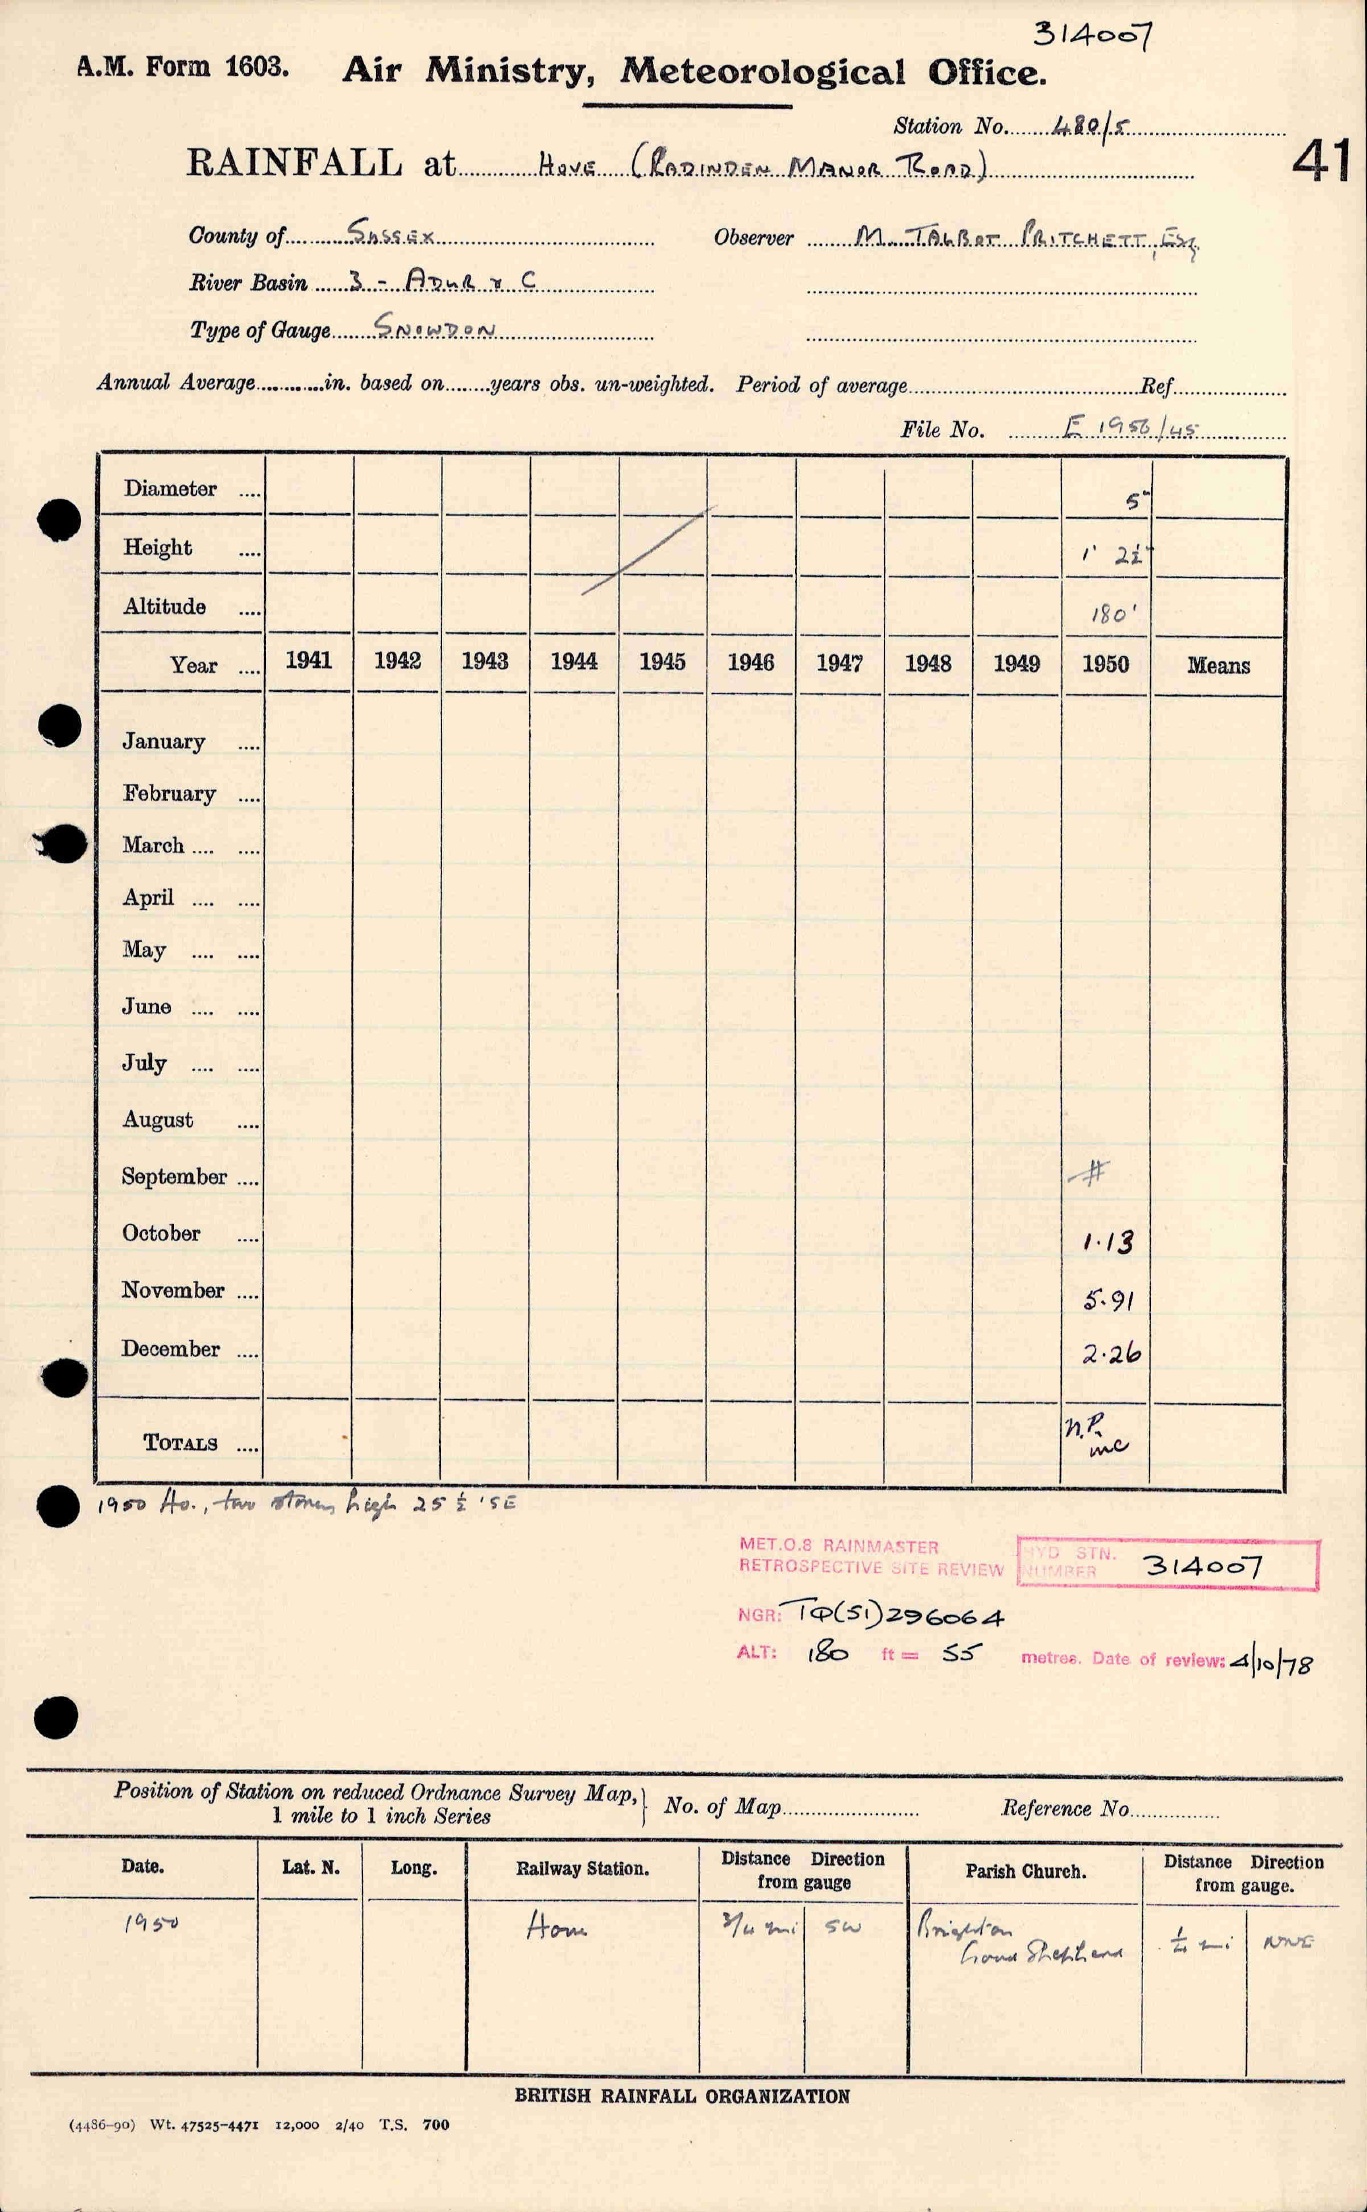 314007
A.M. Form 1603. Air Ministry, Meteorological Office.
Station No. 480/5
41
RAINFALL at HOVE (RADINDEN MANOR ROAD)
County of SUSSEX Observer M. TALBOT PRITCHETT, Esq.
River Basin 3 - ADUR & C
Type of Gauge SNOWDON
Annual Average in. based on years obs. un-weighted. Period of average Ref.
File No. E 1956/45
Diameter .... 5"
Height .... 1' 2½"
Altitude .... 180'
Year .... 1941 1942 1943 1944 1945 1946 1947 1948 1949 1950 Means
January ....
February ....
March .... ....
April .... ....
May .... ....
June .... ....
July .... ....
August ....
September .... #
October .... 1.13
November .... 5.91
December .... 2.26
TOTALS .... N.P. inc
1950 Ho., two storeys high 25½' SE
MET.O.8 RAINMASTER
RETROSPECTIVE SITE REVIEW
HYD STN. NUMBER 314007
NGR: TQ(51)296064
ALT: 180 ft = 55 metres. Date of review: 4/10/78
Position of Station on reduced Ordnance Survey Map, 1 mile to 1 inch Series } No. of Map Reference No.
Date. Lat. N. Long. Railway Station. Distance Direction from gauge Parish Church. Distance Direction from gauge.
1950 Hove 3/4 mi SW Brighton Good Shepherd ¼ mi NNE
BRITISH RAINFALL ORGANIZATION
(4486-90) Wt. 47525-4471 12,000 2/40 T.S. 700